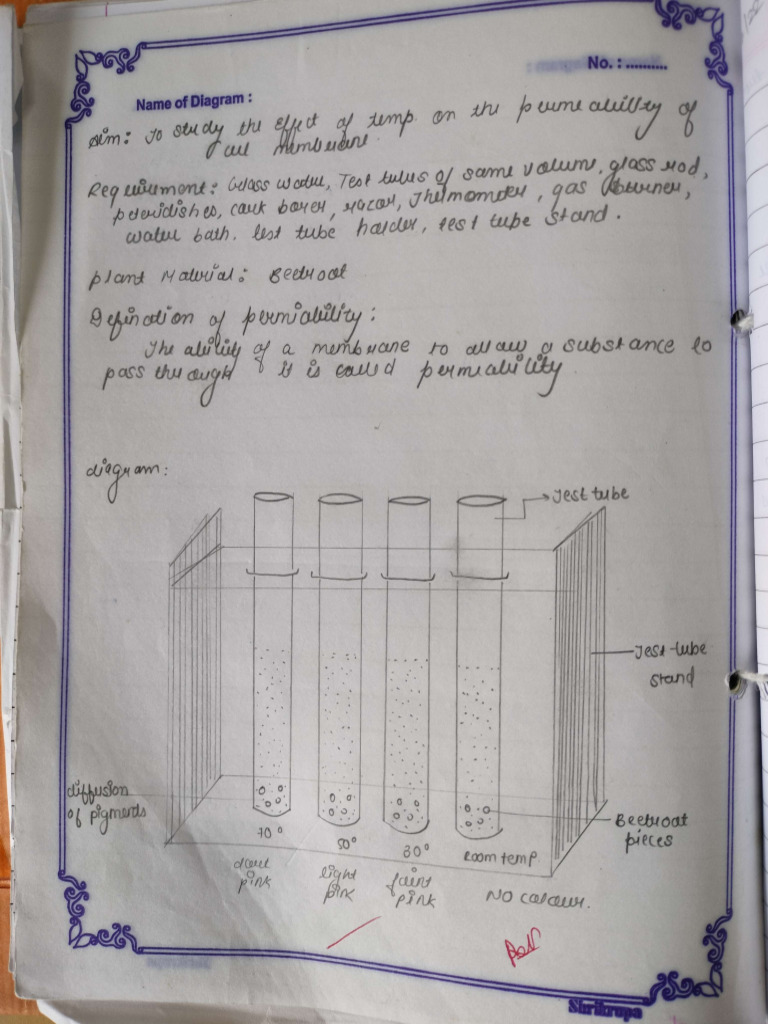 No. : ..........
Name of Diagram :
Aim: To study the effect of temp. on the permeability of
cell membrane.
Requirement: Glass water, Test tubes of same volume, glass rod,
petridishes, cork borer, razor, Thermometer, gas burner,
water bath. test tube holder, test tube stand.
plant Material: Beetroot
Defination of permiability:
The ability of a membrane to allow a substance to
pass through it is called permeability.
diagram:
Test tube
Test-tube
stand
diffusion
of pigments
Beetroot
pieces
70°
50°
30°
Room temp.
dark
pink
light
pink
faint
pink
No colour.
Shrikrupa